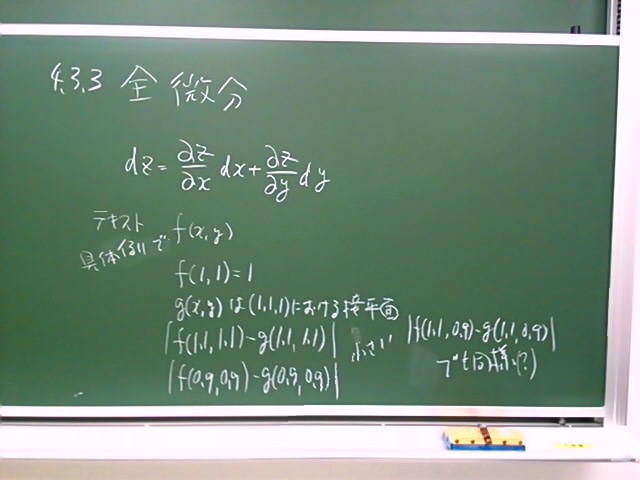 4.3.3 全微分
dz = ∂z/∂x dx + ∂z/∂y dy
テキスト
具体例で f(x,y)
f(1,1)=1
g(x,y)は(1,1,1)における接平面
|f(1.1,1.1)-g(1.1,1.1)| 小さい
|f(0.9,0.9)-g(0.9,0.9)|
|f(1.1,0.9)-g(1.1,0.9)|
でも同様(?)